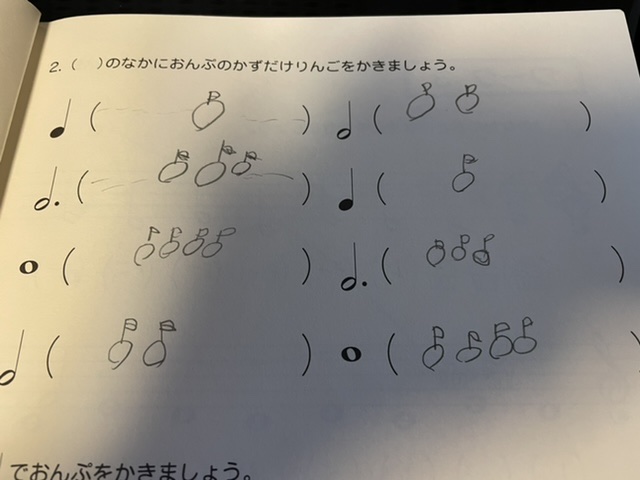 2. (　)のなかにおんぷのかずだけりんごをかきましょう。
(　) (　)
(　) (　)
(　) (　)
(　) (　)
でおんぷをかきましょう。